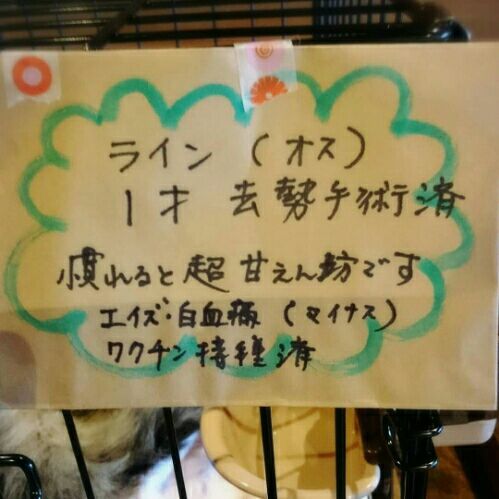 ライン (オス)
1才 去勢手術済
慣れると超甘えん坊です
エイズ・白血病 (マイナス)
ワクチン接種済